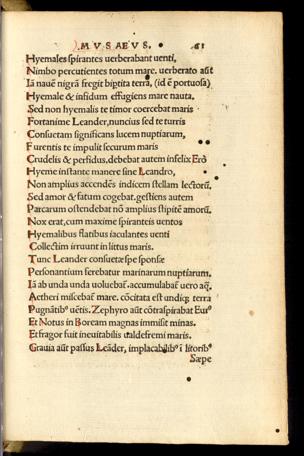 .MVSAEVS. 61
Hyemales spirantes uerberabant uenti,
Nimbo percutientes totum mare. uerberato aũt
Iã nauẽ nigrã fregit biptita terra, (id ẽ portuosa)
Hyemale & infidum effugiens mare nauta.
Sed non hyemalis te timor coercebat maris
Fortanime Leander, nuncius sed te turris
Consuetam significans lucem nuptiarum,
Furentis te impulit securum maris
Crudelis & perfidus. debebat autem infelix Erò
Hyeme instante manere sine Leandro,
Non amplius accendẽs indicem stellam lectorũ.
Sed amor & fatum cogebat. gestiens autem
Parcarum ostendebat nõ amplius stipitẽ amorũ.
Nox erat, cum maxime spirantes uentos
Hyemalibus flatibus iaculantes uenti
Collectim irruunt in littus maris.
Tunc Leander consuetæ spe sponsæ
Personantium ferebatur marinarum nuptiarum.
Iã ab unda unda uoluebat̃. accumulabat̃ uero aq̃.
Aetheri miscebat̃ mare. cõcitata est undiq; terra
Pugnãtibꝰ uẽtis. Zephyro aũt cõtraspirabat Eurꝰ
Et Notus in Boream magnas immisit minas.
Et fragor fuit ineuitabilis ualde fremi maris.
Grauia aũt passus Leãder, implacabilibꝰ ĩ litoribꝰ
Sæpe